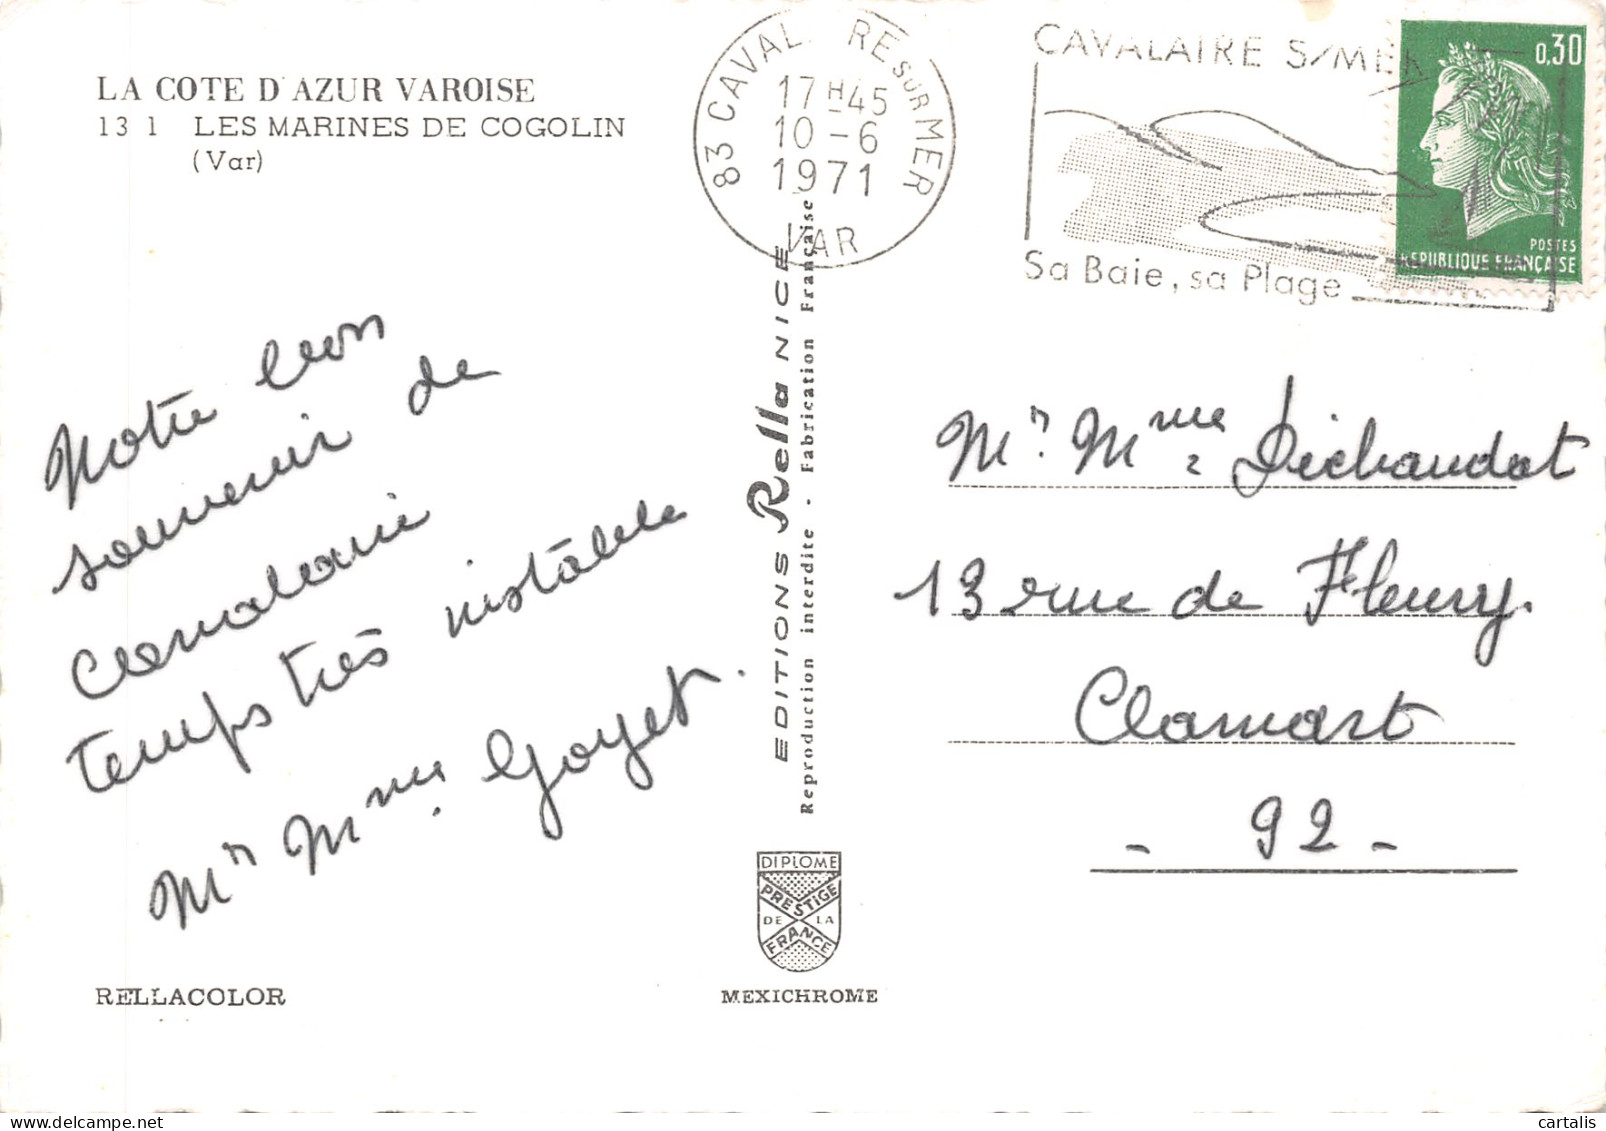 LA COTE D'AZUR VAROISE
13 1 LES MARINES DE COGOLIN
(Var)
Notre bon
souvenir de
Cavalaire
temps très instable
Mr Mme Goyet.
RELLACOLOR
EDITIONS Rella NICE
Reproduction interdite - Fabrication Française
DIPLOME
PRESTIGE
DE LA
FRANCE
MEXICHROME
83 CAVAL RE SUR MER
17H45
10-6
1971
VAR
CAVALAIRE S/MER
Sa Baie, sa Plage
0,30
POSTES
REPUBLIQUE FRANÇAISE
Mr. Mme Dichaudat
13 rue de Fleury.
Clamart
- 92 -
cartalis delcampe.net